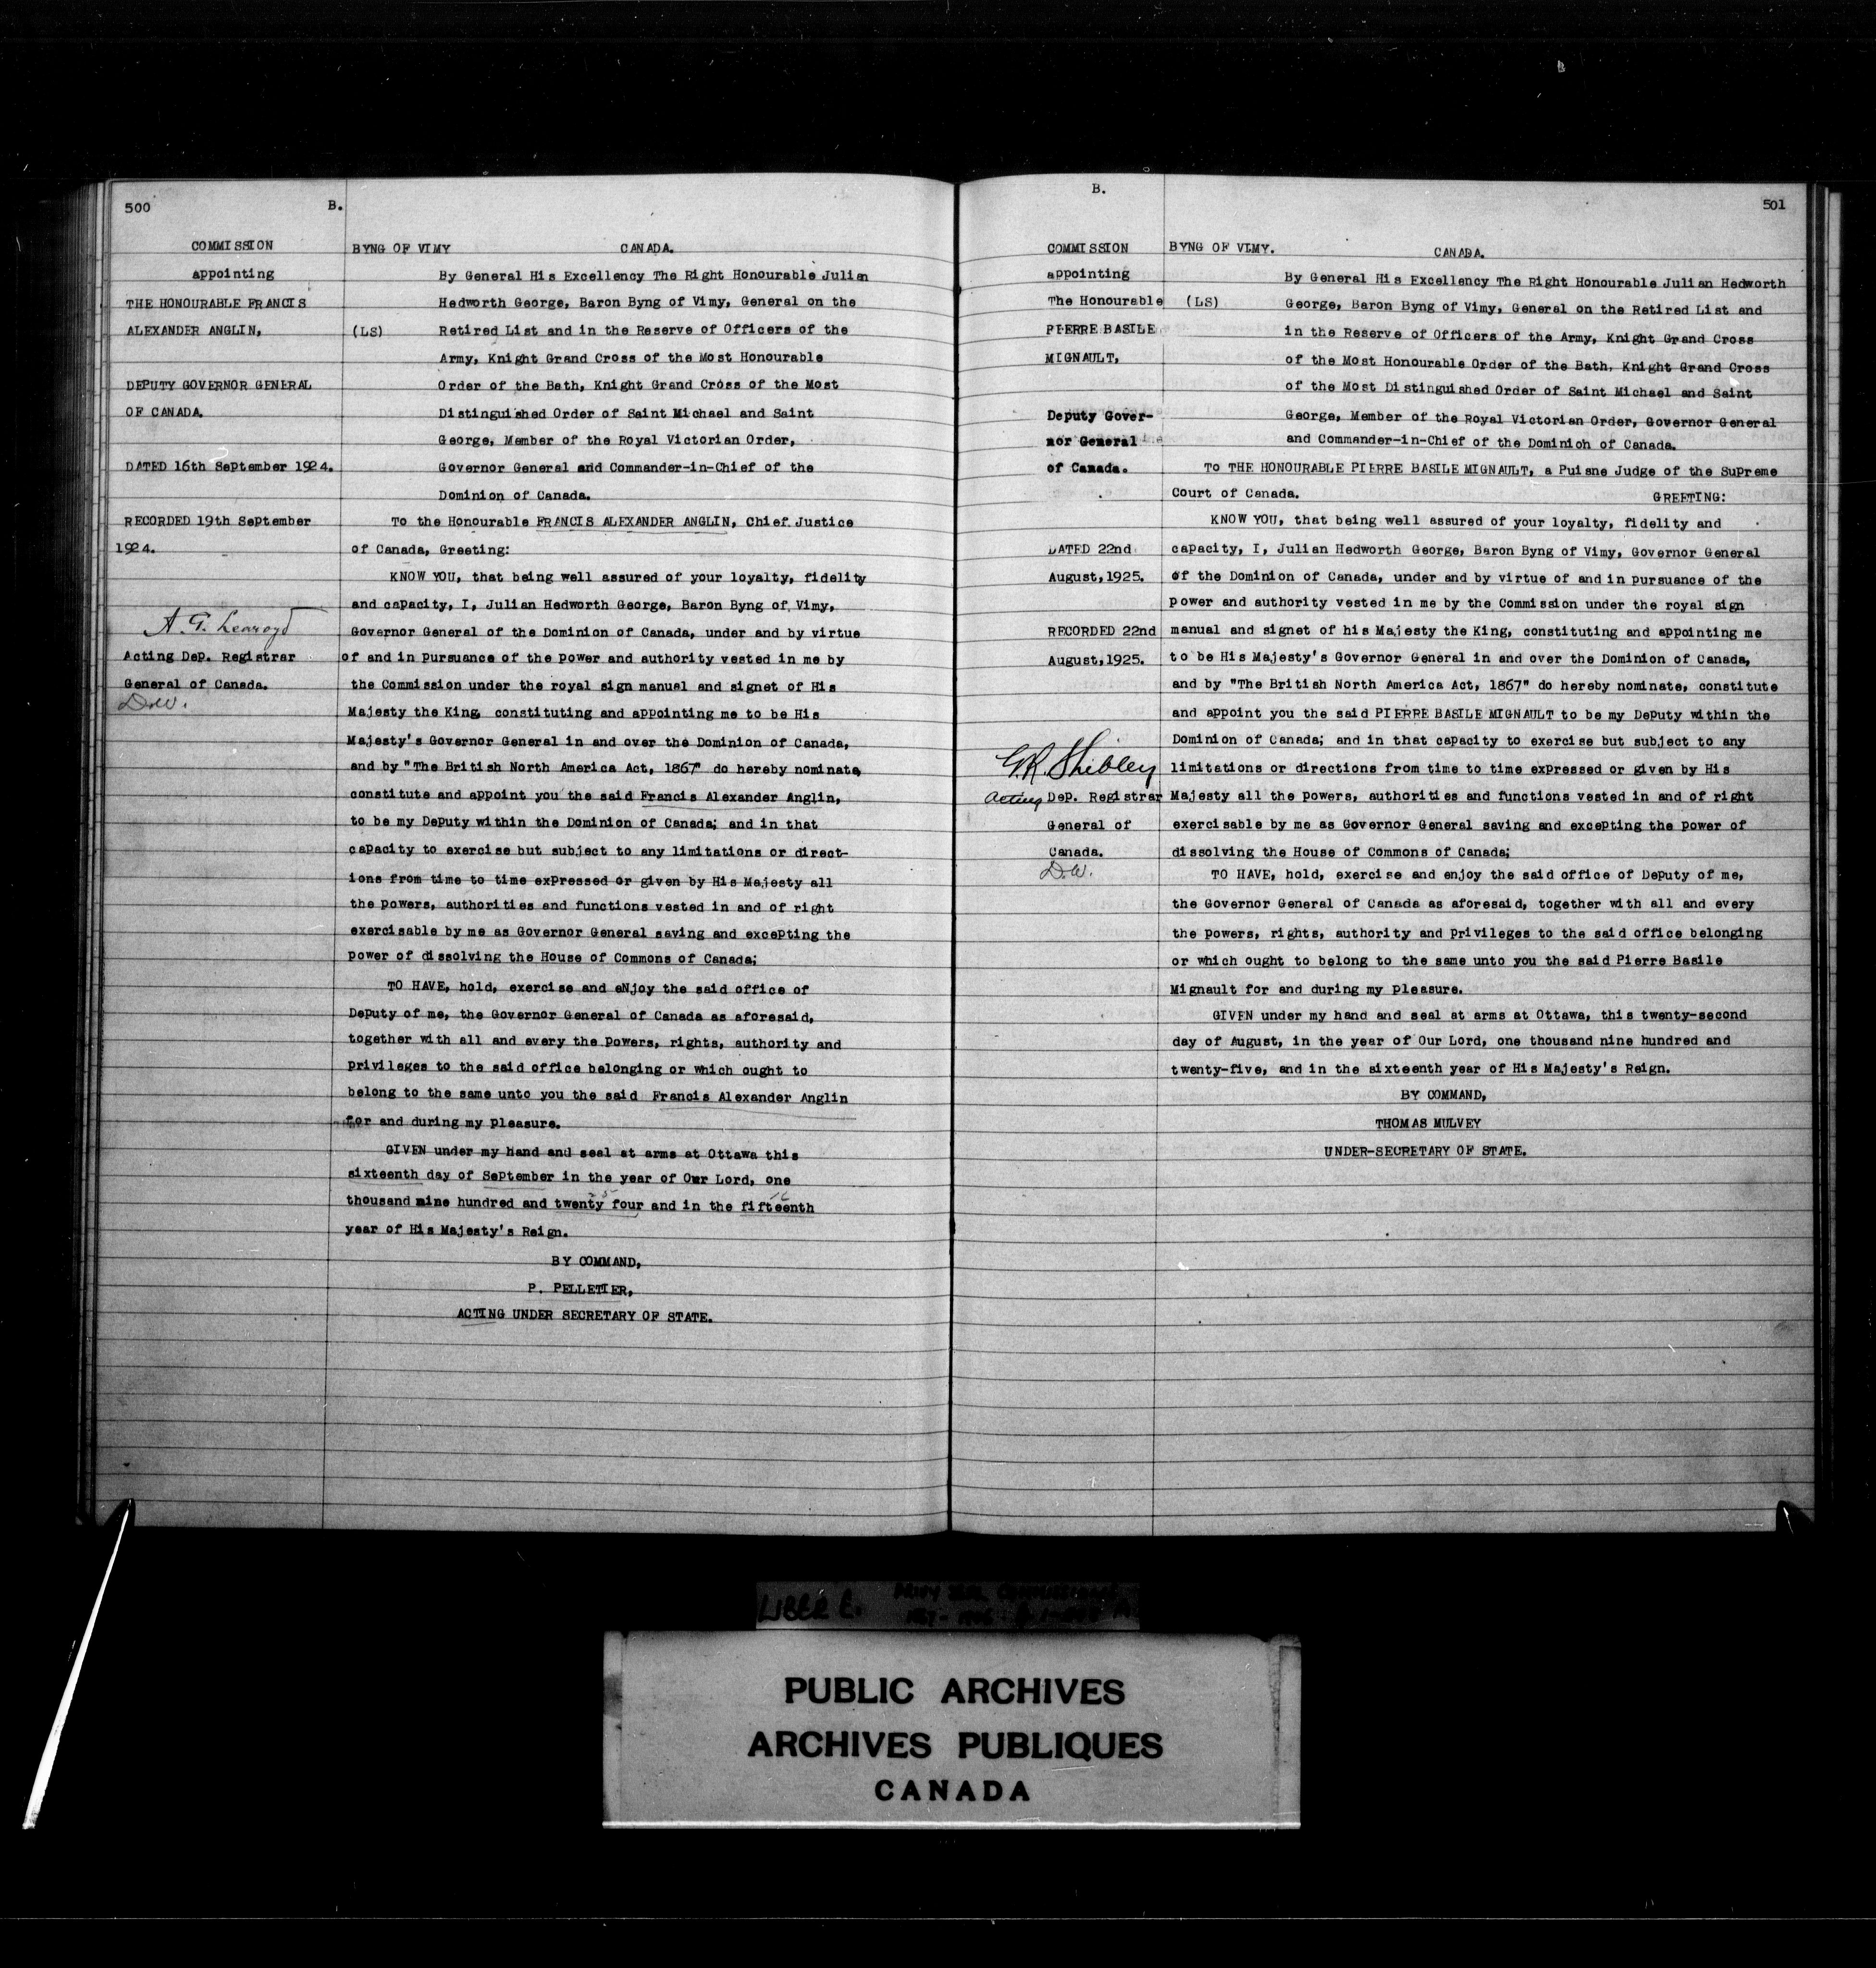 500
B.
COMMISSION
appointing
THE HONOURABLE FRANCIS
ALEXANDER ANGLIN,
DEPUTY GOVERNOR GENERAL
OF CANADA.
DATED 16th September 1924.
RECORDED 19th September
1924.
A. G. Learoyd
Acting Dep. Registrar
General of Canada.
D.W.
BYNG OF VIMY CANADA.
By General His Excellency The Right Honourable Julian
Hedworth George, Baron Byng of Vimy, General on the
(LS) Retired List and in the Reserve of Officers of the
Army, Knight Grand Cross of the Most Honourable
Order of the Bath, Knight Grand Cross of the Most
Distinguished Order of Saint Michael and Saint
George, Member of the Royal Victorian Order,
Governor General and Commander-in-Chief of the
Dominion of Canada.
To the Honourable FRANCIS ALEXANDER ANGLIN, Chief Justice
of Canada, Greeting:
KNOW YOU, that being well assured of your loyalty, fidelity
and capacity, I, Julian Hedworth George, Baron Byng of Vimy,
Governor General of the Dominion of Canada, under and by virtue
of and in pursuance of the power and authority vested in me by
the Commission under the royal sign manual and signet of His
Majesty the King, constituting and appointing me to be His
Majesty's Governor General in and over the Dominion of Canada,
and by "The British North America Act, 1867" do hereby nominate,
constitute and appoint you the said Francis Alexander Anglin,
to be my Deputy within the Dominion of Canada; and in that
capacity to exercise but subject to any limitations or direct-
ions from time to time expressed or given by His Majesty all
the powers, authorities and functions vested in and of right
exercisable by me as Governor General saving and excepting the
power of dissolving the House of Commons of Canada;
TO HAVE, hold, exercise and eNjoy the said office of
Deputy of me, the Governor General of Canada as aforesaid,
together with all and every the powers, rights, authority and
privileges to the said office belonging or which ought to
belong to the same unto you the said Francis Alexander Anglin
for and during my pleasure.
GIVEN under my hand and seal at arms at Ottawa this
sixteenth day of September in the year of Our Lord, one
thousand nine hundred and twenty four and in the fifteenth
year of His Majesty's Reign.
BY COMMAND,
P. PELLETIER,
ACTING UNDER SECRETARY OF STATE.
B.
501
COMMISSION
appointing
The Honourable
PIERRE BASILE
MIGNAULT,
Deputy Gover-
nor General
of Canada.
DATED 22nd
August, 1925.
RECORDED 22nd
August, 1925.
G.R. Shibley
Acting Dep. Registrar
General of
Canada.
D.W.
BYNG OF VIMY. CANADA.
By General His Excellency The Right Honourable Julian Hedworth
(LS) George, Baron Byng of Vimy, General on the Retired List and
in the Reserve of Officers of the Army, Knight Grand Cross
of the Most Honourable Order of the Bath, Knight Grand Cross
of the Most Distinguished Order of Saint Michael and Saint
George, Member of the Royal Victorian Order, Governor General
and Commander-in-Chief of the Dominion of Canada.
To THE HONOURABLE PIERRE BASILE MIGNAULT, a Puisne Judge of the Supreme
Court of Canada. GREETING:
KNOW YOU, that being well assured of your loyalty, fidelity and
capacity, I, Julian Hedworth George, Baron Byng of Vimy, Governor General
of the Dominion of Canada, under and by virtue of and in pursuance of the
power and authority vested in me by the Commission under the royal sign
manual and signet of his Majesty the King, constituting and appointing me
to be His Majesty's Governor General in and over the Dominion of Canada,
and by "The British North America Act, 1867" do hereby nominate, constitute
and appoint you the said PIERRE BASILE MIGNAULT to be my Deputy within the
Dominion of Canada; and in that capacity to exercise but subject to any
limitations or directions from time to time expressed or given by His
Majesty all the powers, authorities and functions vested in and of right
exercisable by me as Governor General saving and excepting the power of
dissolving the House of Commons of Canada;
TO HAVE, hold, exercise and enjoy the said office of Deputy of me,
the Governor General of Canada as aforesaid, together with all and every
the powers, rights, authority and privileges to the said office belonging
or which ought to belong to the same unto you the said Pierre Basile
Mignault for and during my pleasure.
GIVEN under my hand and seal at arms at Ottawa, this twenty-second
day of August, in the year of Our Lord, one thousand nine hundred and
twenty-five, and in the sixteenth year of His Majesty's Reign.
BY COMMAND,
THOMAS MULVEY
UNDER-SECRETARY OF STATE.
LIBER
PRIVY SEAL COMMISSIONS
PUBLIC ARCHIVES
ARCHIVES PUBLIQUES
CANADA